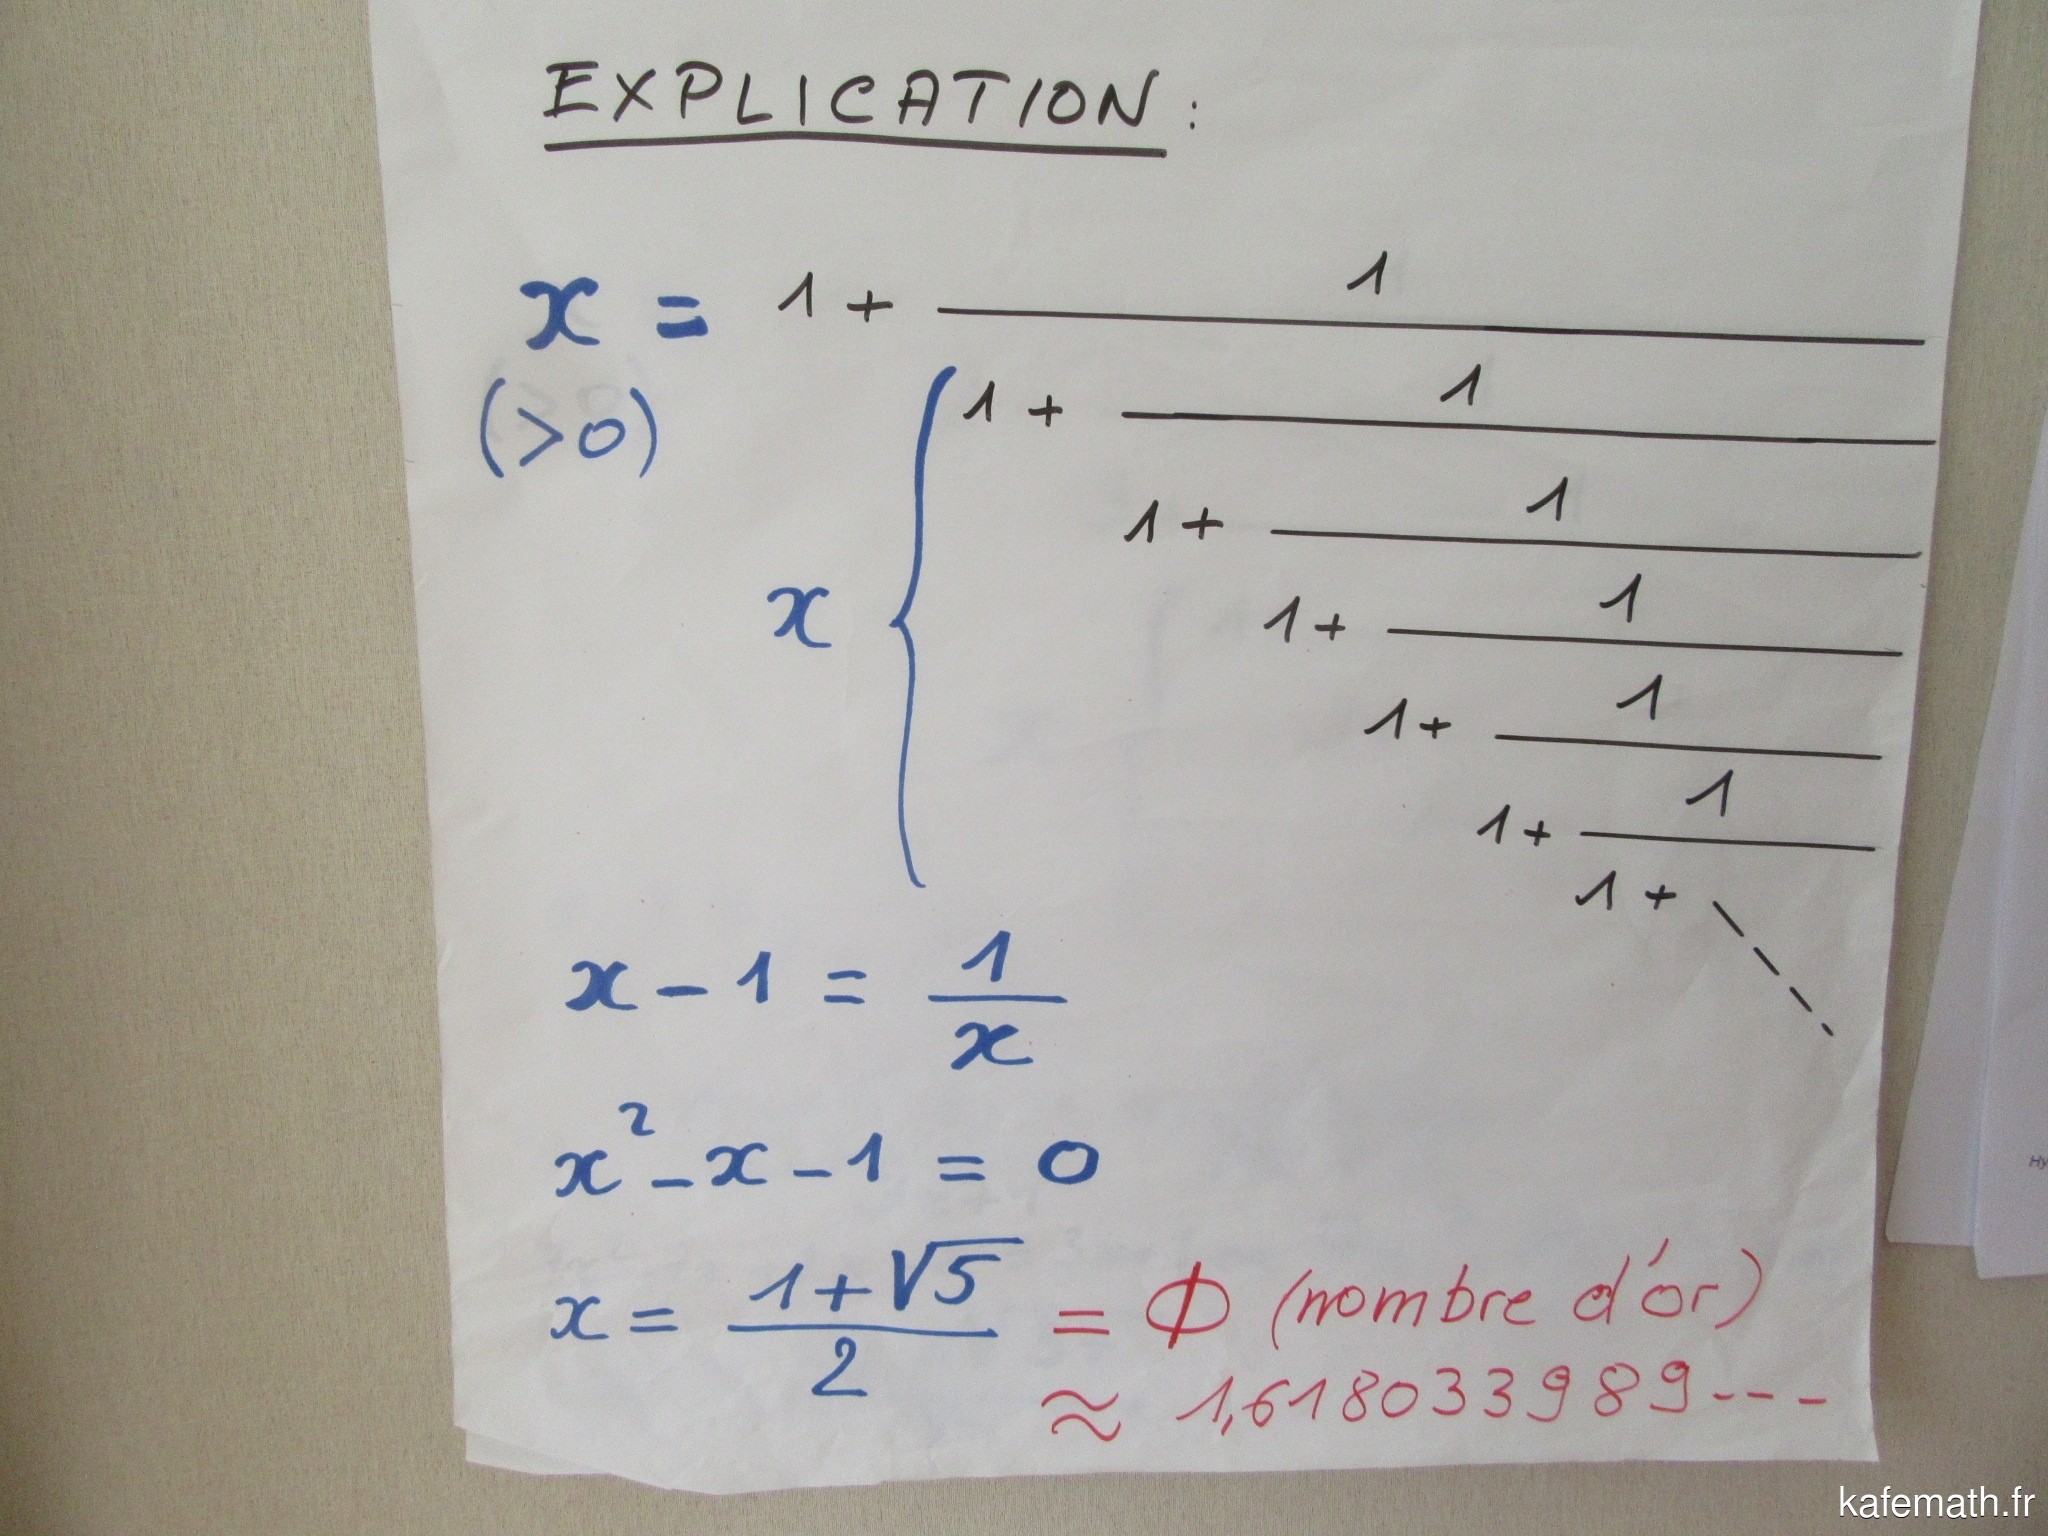 EXPLICATION :
x = 1 + 1
(>0)
1 + 1
1 + 1
x
1 + 1
1 + 1
1 + 1
1 +
x - 1 = 1/x
x² - x - 1 = 0
x = (1 + √5)/2 = Φ (nombre d'or)
≈ 1,618033989---
Hy
kafemath.fr